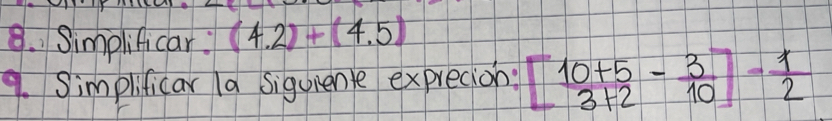 8. Simplificar: (4.2)+(4.5)
9. Simplificar la siguiente expreción: [10+5/3+2 - 3/10] - 1/2